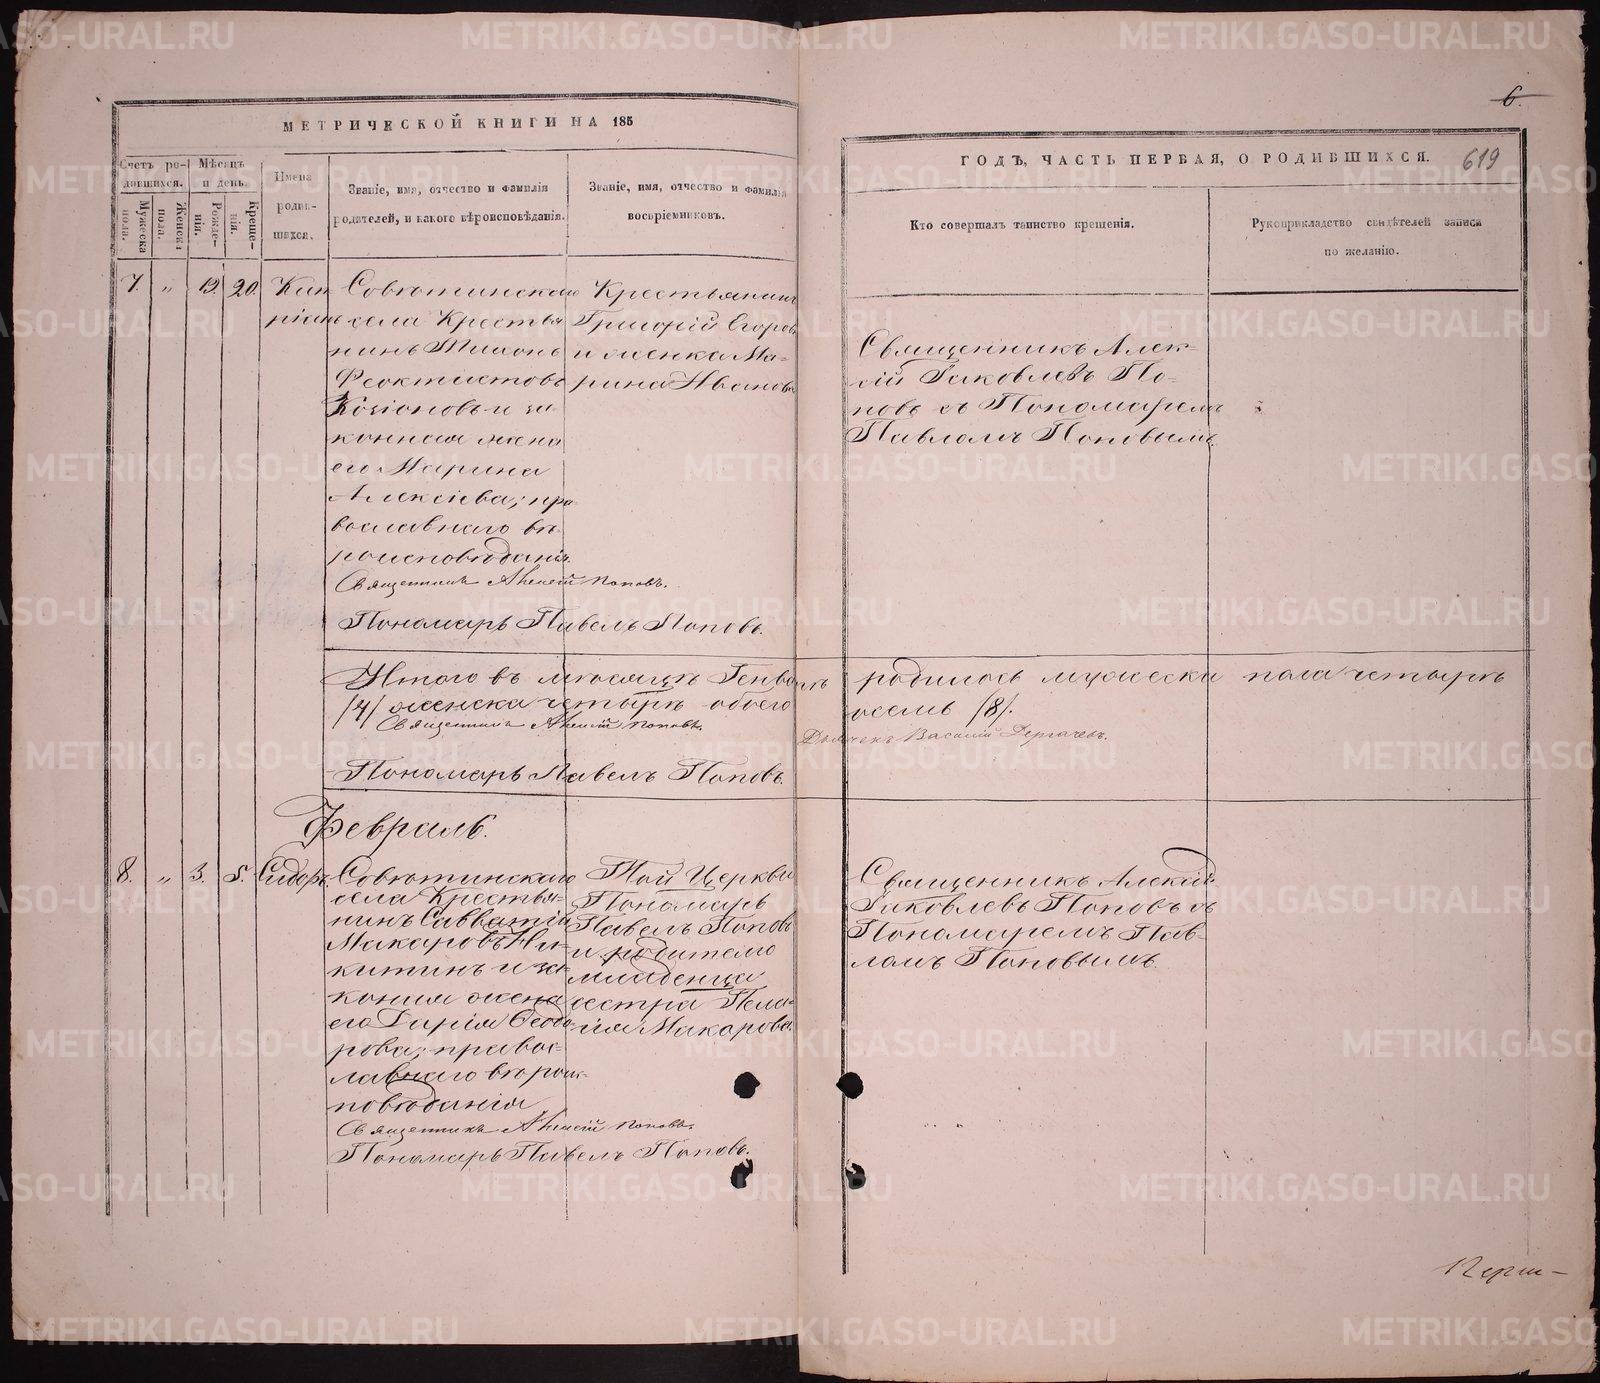 6.
МЕТРИЧЕСКОЙ КНИГИ НА 185
ГОДЪ, ЧАСТЬ ПЕРВАЯ, О РОДИВШИХСЯ.
619
Счетъ ро-
дившихся.
Мужеска
пола.
Женска
пола.
Мѣсяцъ
и день.
Рожде-
нія.
Креще-
нія.
Имена
роди-
шихся.
Званіе, имя, отчество и фамилія
родителей, и какого вѣроисповѣданія.
Званіе, имя, отчество и фамилія
воспріемниковъ.
Кто совершалъ таинство крещенія.
Рукоприкладство свидѣтелей записи
по желанію.
7. " 19. 20.
Кип
ріанъ
Совѣтинскаго
села Крестья
нинъ Тихонъ
Феоктистовъ
и за
конная жена
его Марина
Алексіева; пра
вославнаго вѣ
роисповѣданія.
Священникъ Алексій Поповъ.
Пономарь Павелъ Поповъ.
Крестьянинъ
Григорій Егоровъ
и женка Ма-
рина Иванова
Священникъ Алек-
сій Яковлевъ По-
повъ съ Пономаремъ
Павломъ Поповымъ
Итого въ мѣсяцѣ Генварѣ родилось мужеска пола четыре
/4/ женска четыре обоего осемь /8/.
Священникъ Алексій Поповъ.
Дьячекъ Василій Дергачевъ.
Пономарь Павелъ Поповъ.
Февраль.
8. " 3. 5. Сидоръ.
Совѣтинскаго
села Крестья-
нинъ Савватій
Макаровъ Ни-
китинъ и за-
конная жена
его Дарія Ѳеодо
рова; правос-
лавнаго вѣроис-
повѣданія
Священникъ Алексій Поповъ.
Пономарь Павелъ Поповъ.
Той Церкви
Пономарь
Павелъ Поповъ
и родителю
младенца
сестра Пела-
гія Макарова.
Священникъ Алексій
Яковлевъ Поповъ съ
Пономаремъ Пав-
ломъ Поповымъ.
METRIKI.GASO-URAL.RU